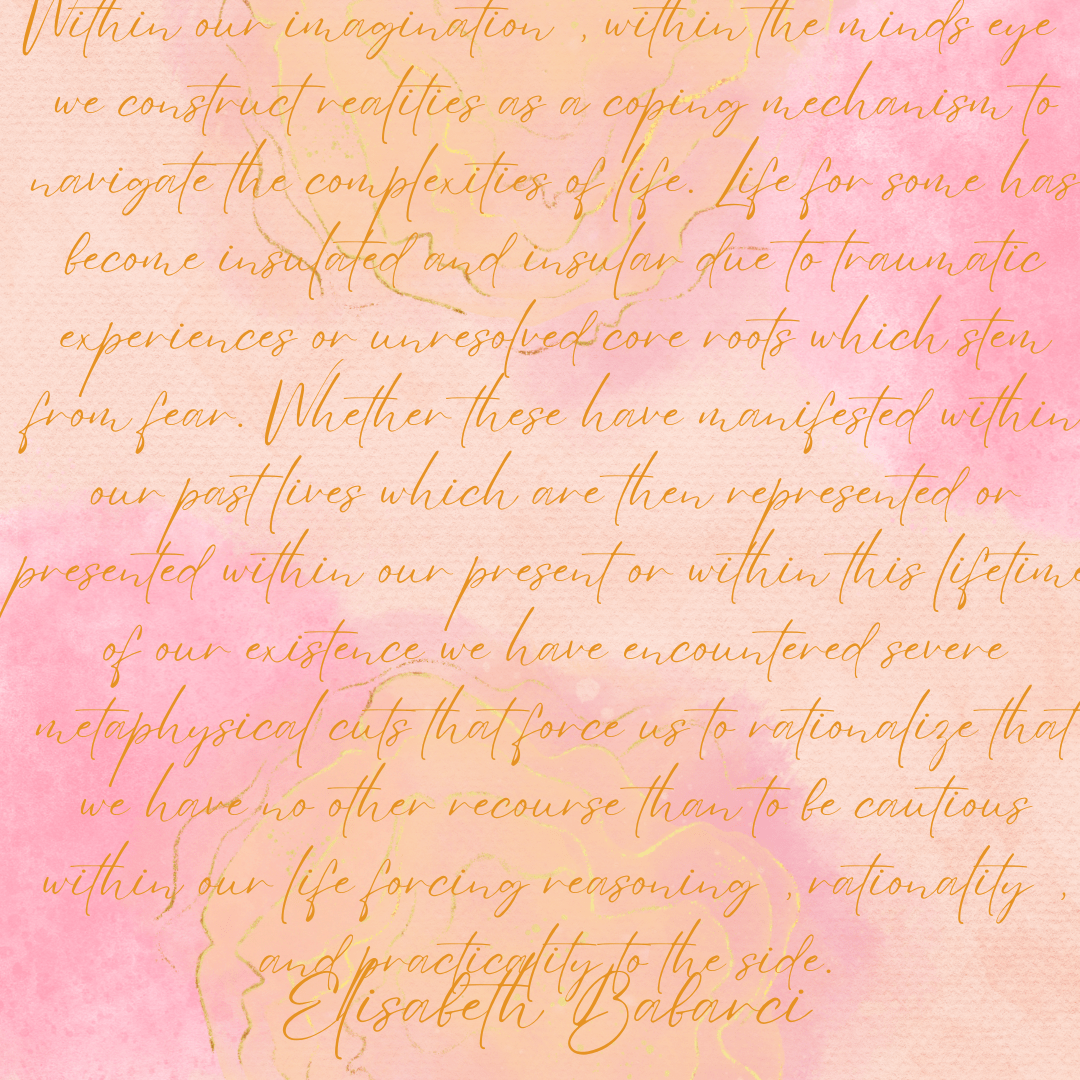 Within our imagination , within the minds eye
we construct realities as a coping mechanism to
navigate the complexities of life. Life for some has
become insulated and insular due to traumatic
experiences or unresolved core roots which stem
from fear. Whether these have manifested within
our past lives which are then represented or
presented within our present or within this lifetime
of our existence we have encountered severe
metaphysical cuts that force us to rationalize that
we have no other recourse than to be cautious
within our life forcing reasoning , rationality ,
and practicality to the side.
Elisabeth Babarci